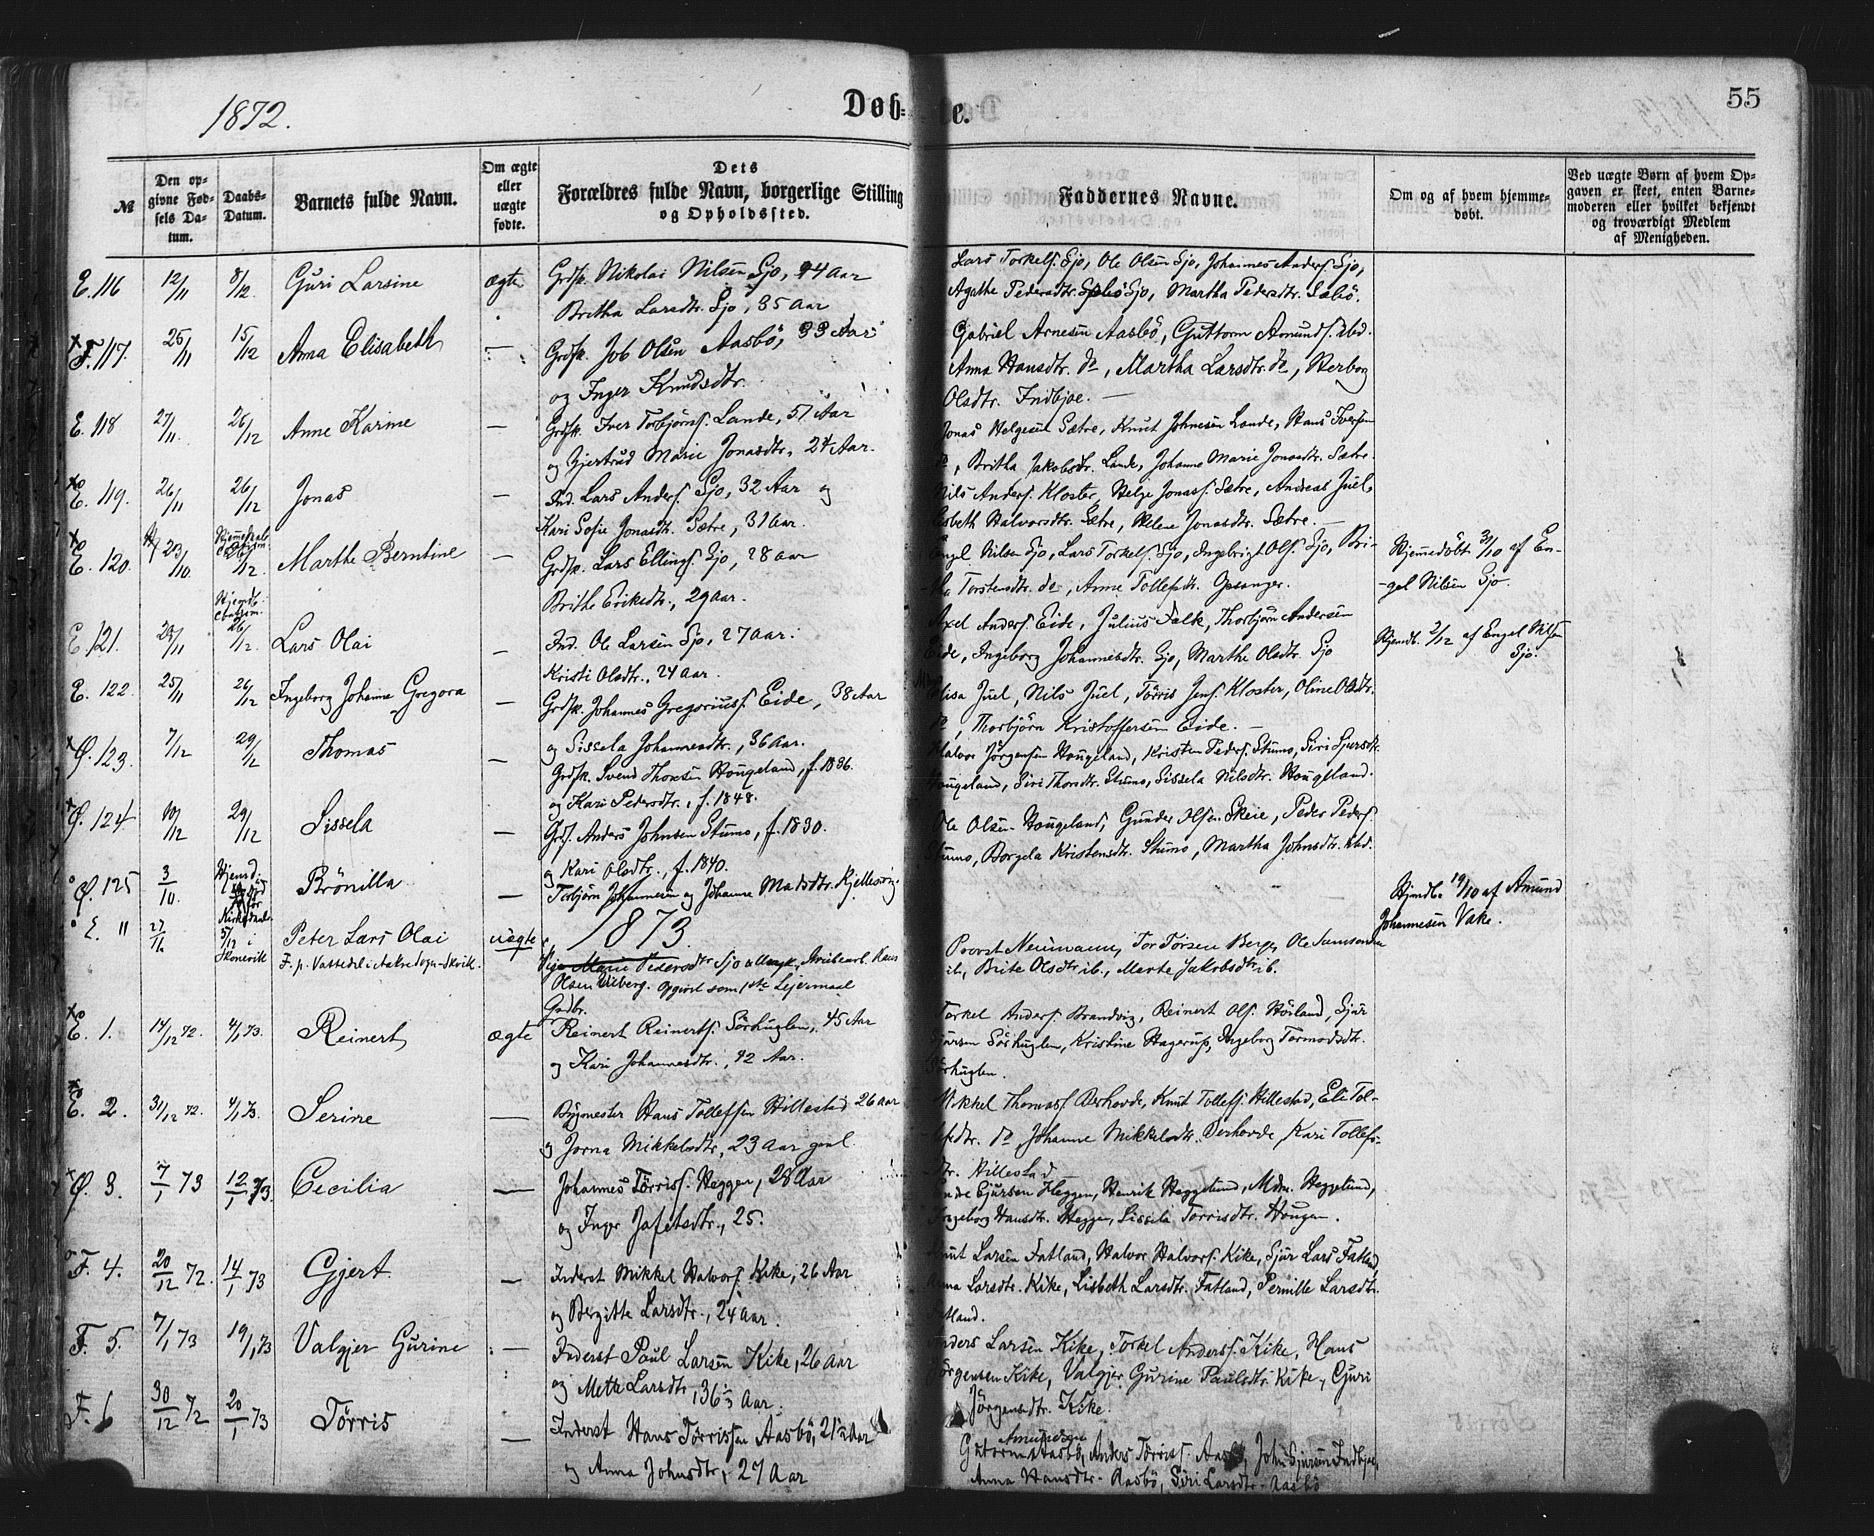 1872.
Døb-te.
55
№
Den opgivne Fødsels Datum.
Daabs-Datum.
Barnets fulde Navn.
Om ægte eller uægte fødte.
Dets Forældres fulde Navn, borgerlige Stilling og Opholdssted.
Faddernes Navne.
Om og af hvem hjemmedøbt.
Ved uægte Børn af hvem Opgaven er skeet, enten Barnemoderen eller hvilket bekjendt og troværdigt Medlem af Menigheden.
E. 116 12/11 8/12. Guri Larsine ægte Grdsk. Nikolai Nilsen Sjo, 44 Aar
Britha Larsdtr. Sjo, 35 Aar
Lars Torkels. Sjo, Ole Olsen Sjo, Johannes Anders. Sjo,
Agathe Pedersdtr. Sjo, Martha Pedersdtr. Sæbö.
F. 117. 25/11 15/12 Anna Elisabeth — Grdsk. Job Olsen Aasbö, 33 Aar
og Inger Knudsdtr.
Gabriel Arnesen Aasbö, Guttorm Amunds. ibid.
Anna Hansdtr. do, Martha Larsdtr. do, Herborg
Olsdtr. Indbjoe. —
E. 118 27/11. 26/12 Anne Karine — Grdsk. Iver Torbjörns. Lande, 51 Aar
og Gjertrud Marie Jonasdtr. 24 Aar.
Jonas Helgesen Sætre, Knut Johnesen Lande, Hans Iversen
do, Britha Jakobsdtr. Lande, Johanne Marie Jonasdtr. Sætre.
E. 119. 26/11 26/12 Jonas — Ind. Lars Anders. Sjo, 32 Aar og
Kari Sofie Jonasdtr. Sætre, 31 Aar.
Nils Anders. Kloster, Helge Jonas. Sætre, Andreas Juel,
Lisbeth Halvorsdtr. Sætre, Helene Jonasdtr. Sætre. —
E. 120. 23/10. 26/12. Marthe Berntine — Grdsk. Lars Ellings. Sjo, 28 Aar
Brithe Eriksdtr., 29 Aar.
Engel Nilsen Sjo, Lars Torkels. Sjo, Ingebrigt Ols. Sjo, Bri-
tha Torstensdtr. do, Anne Tollefsdtr. Opsanger.
Hjemmedöbt 31/10 af En-
-gel Nilsen Sjo.
E. 121. 29/11 26/12. Lars Olai — Ind. Ole Larsen Sjo, 27 Aar.
Kristi Olsdtr., 24 Aar.
Axel Anders. Eide, Julius Falk, Thorbjörn Andersen
Eide, Ingeborg Johannesdtr. Sjo, Marthe Olsdtr. Sjo
Hjemdb. 2/12 af Engel Nilsen
Sjo.
E. 122. 25/11 26/12 Ingeborg Johanna Gregora — Grdsk. Johannes Gregorius. Eide, 38 Aar
og Sissela Johannesdtr., 36 Aar.
Elisa Juel, Nils Juel, Törris Jens. Kloster, Oline Olsdtr.
do, Thorbjörn Kristoffersen Eide. —
Ø. 123. 7/12 29/12 Thomas — Grdsk. Svend Thomsen Hougeland, f. 1836.
og Kari Pedersdtr., f. 1848.
Halvor Jörgensen Hougeland, Kristen Peders. Stumo, Siri Sjursdtr.
Hougeland, Siri Thorsdtr. Stumo, Sissela Nilsdtr. Hougeland.
Ø. 124 10/12 29/12 Sissela — Grds. Anders Johnsen Stumo, f. 1830.
og Kari Olsdtr., f. 1840.
Ole Olsen Hougeland, Gunder Olsen Skeie, Peder Peders.
Stumo, Borgela Kristensdtr. Stumo, Martha Johnsdtr. ibid.
Ø. 125 3/10. Hjemd. Brönilla — Torbjörn Johannesen og Johanne Matsdtr. Kjellesvig
Hjemdb. 19/10 af Amund
Johannesen Vake.
E. 11 5/12 i Skonevik Peter Lars Olai uægte
F. p. Vattedal i Aakre Sogn-Skvik.
1873.
Marie Pedersdtr Sjo
Olsen Uleberg. Opgivet som 1ste Leiermaal
Provst Neumann, Tor Törsen Berge, Ole Samsonsen
ib., Brite Olsdtr ib., Marte Jakobsdtr ib.
E. 1. 14/12 72. 4/1 73. Reinert ægte Gadbr.
Reinert Reinerts. Sörhuglen, 45 Aar
og Kari Johannesdtr., 42 Aar.
Torkel Anders. Brandvig, Reinert Ols. Höiland, Sjur
Sjursen Sörhuglen, Kristine Hagerup, Ingeborg Tormodsdtr.
Sörhuglen.
E. 2. 31/12 72. 4/1 73. Serine — Bygmester Hans Tollefsen Hillestad 26 aar
og Jorna Mikkelsdtr, 23 Aar gml.
Mikkel Thomas. Berhovde, Knut Tollefs. Hillestad, Eli Tol-
lefsdtr. do Johanne Mikkelsdtr. Berhovde Kari Tollefs-
dtr. Hillestad
Ø. 3. 7/1 73 12/1 73. Cecilia — Johannes Törris. Heggen, 28 Aar
og Inger Jafetsdtr., 25.
Endre Sjursen Heggen, Henrik Heggelund, Mdm. Heggelund,
Ingeborg Hansdtr. Heggen, Sissela Torrisdtr. Hougen.
F. 4. 20/12 72. 14/1 73 Gjert — Inderst Mikkel Halvors. Kike, 26 Aar
og Bergitte Larsdtr., 24 Aar.
Knut Larsen Fatland, Halvor Halvors. Kike, Sjur Lars. Fatland,
Anna Larsdtr. Kike, Lisbeth Larsdtr. Fatland, Pernille Larsdtr.
Fatland.
F. 5. 7/1 73 19/1 73 Valgjer Gurine — Inderst Paul Larsen Kike, 26 Aar
og Mette Larsdtr, 36 Aar.
Anders Larsen Kike, Torkel Anders. Kike, Hans
Jörgensen Kike, Valgjer Gurine Paulsdtr. Kike, Guri
Jörgensdtr. Kike.
F. 6 30/12 72 20/1 73 Törris — Inderst Hans Törrissen Aasbö, 21 Aar
og Anna Johnsdtr, 27 Aar
Amundsen
Gutorm Aasbö, Anders Törris. Aasbö, John Sjursen Indbjoe,
Anna Hansdtr. Aasbö, Siri Larsdtr. Aasbö